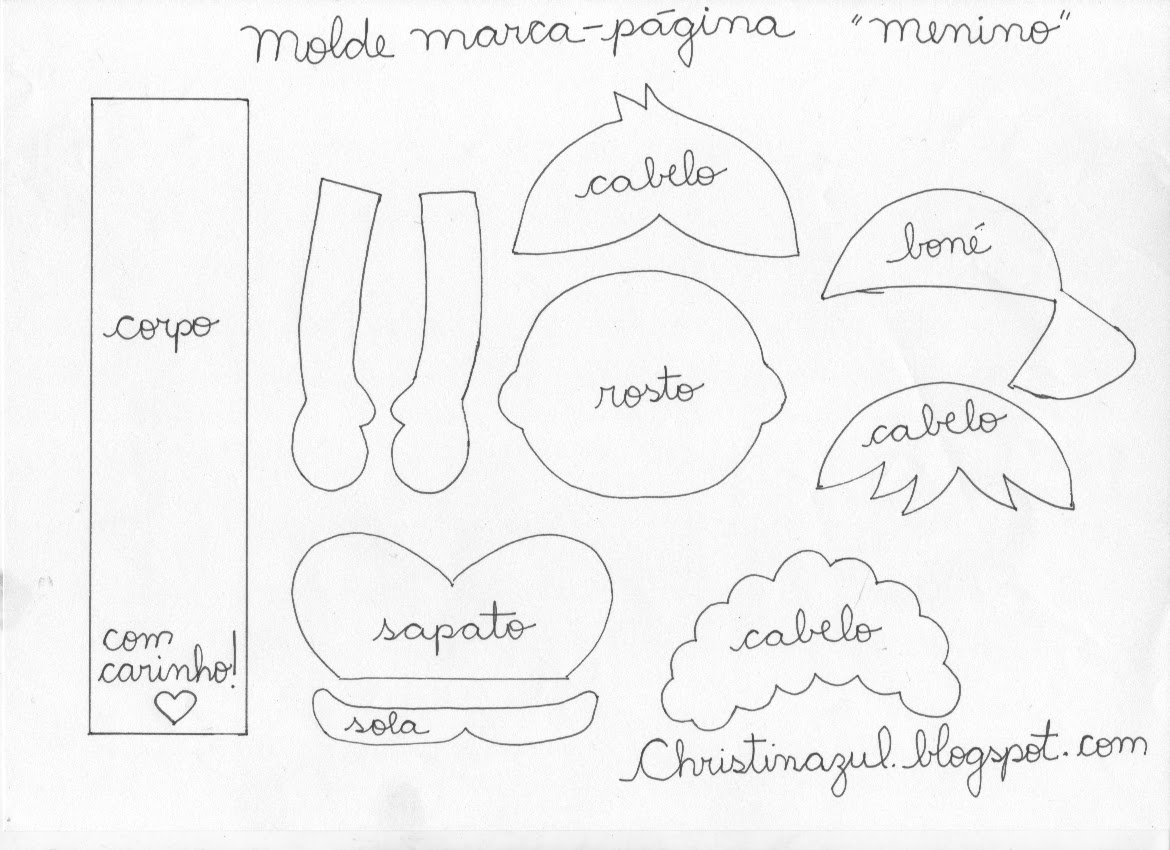 Molde marca-página "menino"
cabelo
boné
corpo
rosto
cabelo
sapato
cabelo
com
carinho!
sola
Christinazul.blogspot.com